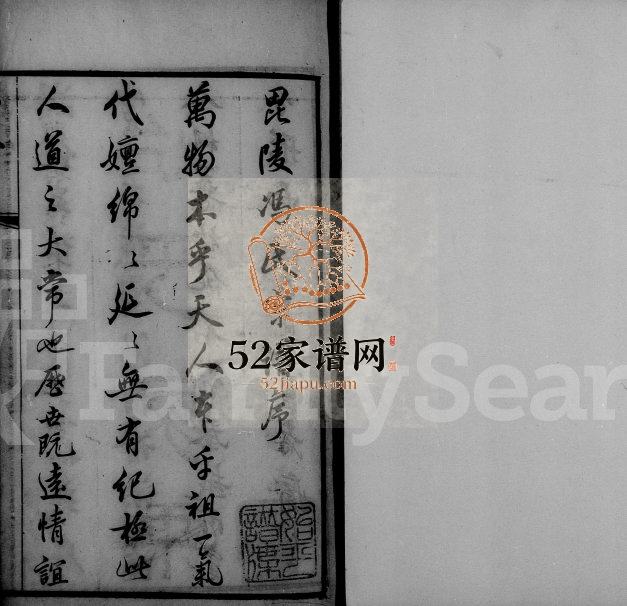 毘陵馮氏宗譜序
萬物本乎天人本乎祖一氣
代嬗綿〻延〻無有紀極此
人道之大常也歷世既遠情誼
52家谱网
52jiapu.com
FamilySear